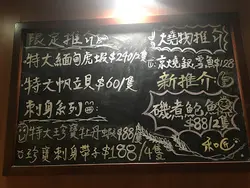 限定推介
特大緬甸虎蝦 $290/2隻
特大帆立貝 $60/隻
刺身系列
特大珍寶牡丹蝦 $88/隻
珍寶刺身帶子 $188/4隻
燒物推介
京燒銀鱈魚 $128
新推介
磯煮鮑魚
$88/2隻